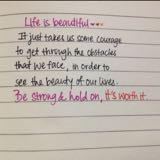 Life is beautiful ♥♥♥
It just takes us some courage
to get through the obstacles
that we face, in order to
see the beauty of our lives.
Be strong & hold on, it's worth it.